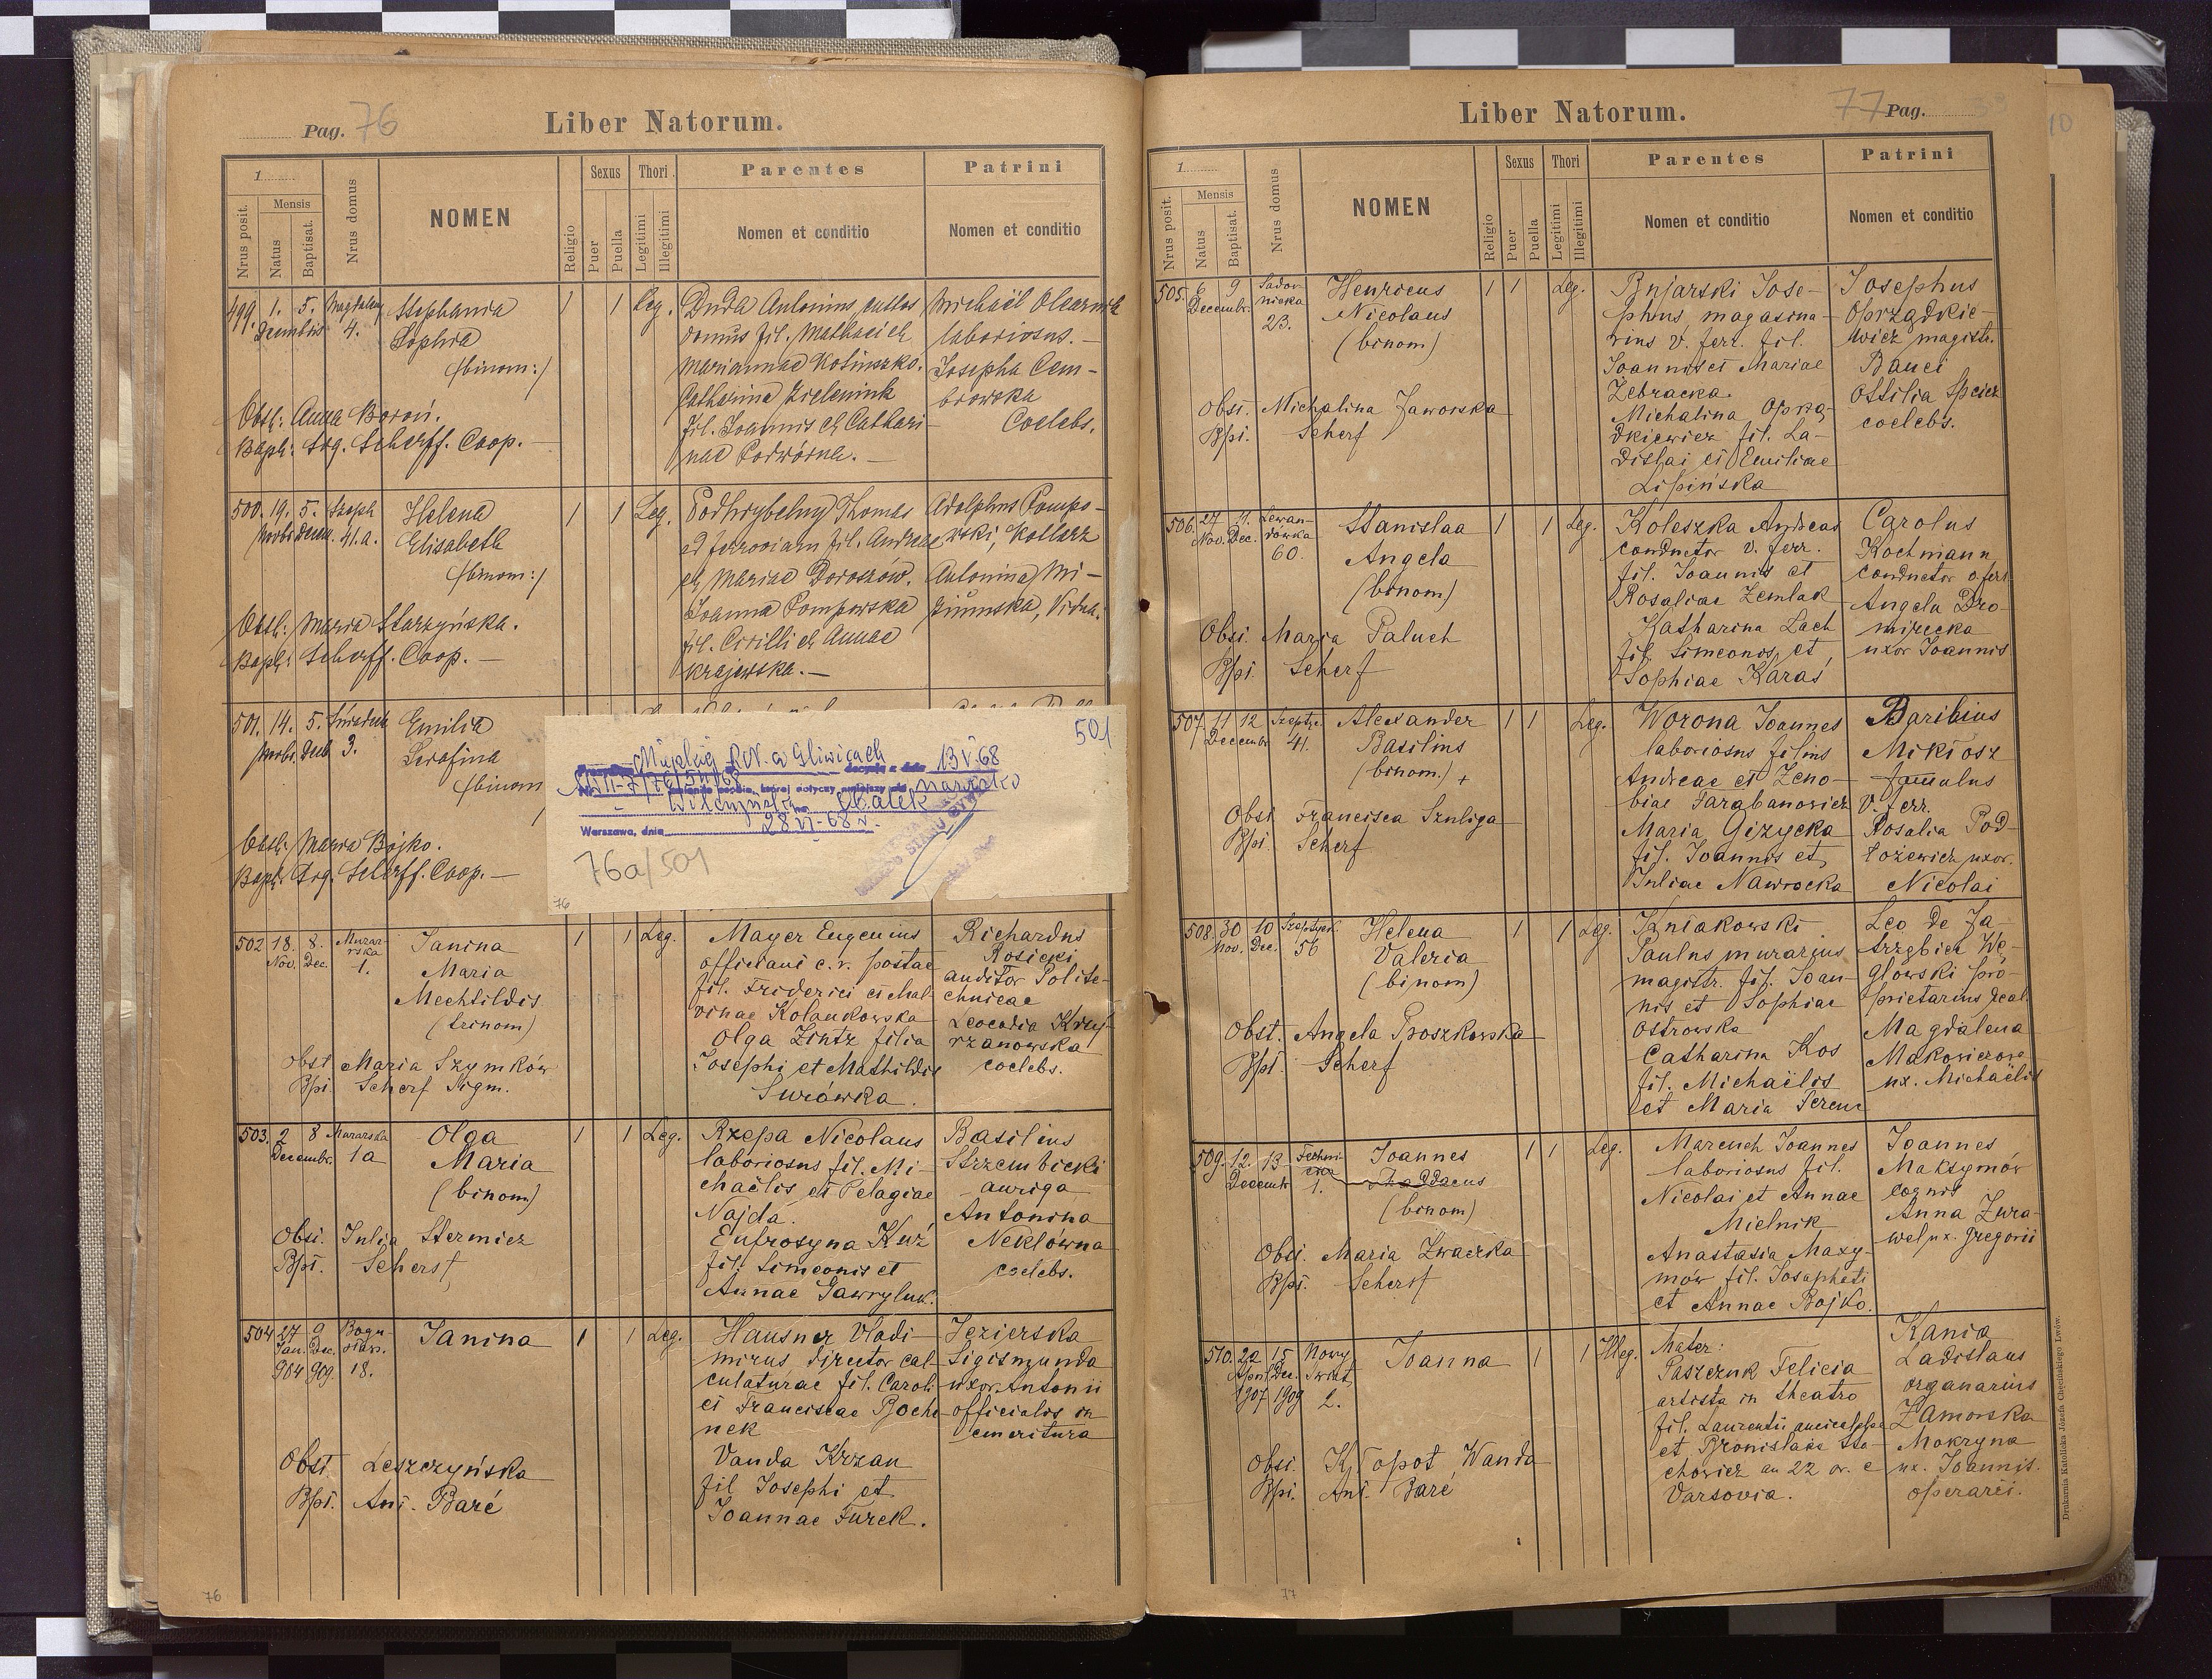 Pag. 76
Liber Natorum.
1
Nrus posit.
Mensis
Natus
Baptisat.
Nrus domus
NOMEN
Religio
Sexus
Puer
Puella
Thori
Legitimi
Illegitimi
Parentes
Nomen et conditio
Patrini
Nomen et conditio
499. 1. 5. Magdaleny Stephania 1 1 Leg. Duda Antonius custos Michaël Olearnik
Decembris 4. Sophia domus fil. Mathaei et laboriosus.—
(binom:) Mariannae Kosinszko. Josepha Cem-
Catharina Zielenink browska
Obst: Anna Boroń. fil. Joannis et Cathari- Coelebs.
Bapt: Sig. Scherff. Coop.— nae Podwórna.—
500. 19. 5. Szept. Helena 1 1 Leg. Podhrybelny Thomas Adolphus Pompo-
Novbr. Decem. 41.a. Elisabeth ad ferroviam fil. Andreae wski, Kollarz
(binom:) et Mariae Doroszów. Antonina Mi-
Joanna Pompowska
Obst: Maria Starzyńska. fil. Cirilli et Annae
Bapt: Scherff. Coop.— Krajewska.—
501. 14. 5. Emilia
Novbr. Decb. 3. Serafina
(binom
Obst: Maria Bojko.
Bapt: Sig. Scherff. Coop.—
501
Miejskiej R.N. w Gliwicach decyzją z dnia 13 V. 68
nazwisko
Warszawa, dnia 28 VI-68 r.
76a/501
76
502 18. 8. Murar- Janina 1 1 Leg. Mayer Eugenius Richardus
Nov. Dec. rska Maria officiani c. r. postae Rosicki
1. Mechtildis fil. Friderici et Mal- auditor Polite-
(trinom) vinae Kolankowska chnicae
Olga Zintz filia Leocadia Krzy-
Obst Maria Szymków Josephi et Mathildis rzanowska
Bpt Scherf Sigm. Surówka. coelebs.
503. 2 8 Murarska Olga 1 1 Leg. Rzepa Nicolaus Basilius
Decembr. 1a Maria laboriosus fil. Mi- Strzembicki
(binom) chaëlis et Pelagiae auriga
Najda. Antonina
Obst. Julia Stermicz Eufrosyna Kuź Neklówna
Bpt. Scherff fil. Simeonis et coelebs.
Annae Gawryluk.
504 27 9 Bogu- Janina 1 1 Leg. Hausner Vladi- Jezierska
Jan. Dec. sław. mirus director cal- Sigismunda
904 909. 18. culaturae fil. Caroli uxor Antonii
et Franciscae Boche- officialis in
nek emeritura
Obst Leszczyńska Vanda Krzan
Bpt. Ant. Baré fil Josephi et
Joannae Turek.
76
Liber Natorum.
77 Pag.
1
Nrus posit.
Mensis
Natus
Baptisat.
Nrus domus
NOMEN
Religio
Sexus
Puer
Puella
Thori
Legitimi
Illegitimi
Parentes
Nomen et conditio
Patrini
Nomen et conditio
505. 6 9 Sadow- Henricus 1 1 Leg. Bujarski Jose- Josephus
Decembr. nicka Nicolaus phus magasina- Oprządkie-
23. (binom) rius v. ferr. fil. wicz magistr.
Joannis et Mariae Bauci
Żebracka. Ottilia Speier
Obst. Michalina Jaworska Michalina Oprzą- coelebs.
Bpt. Scherf dkiewicz fil. La-
dislai et Emiliae
Lipińska
506. 27 11. Lewan- Stanislaa 1 1 Leg. Koleszka Andreas Carolus
Nov. Dec. dówka Angela conductor v. ferr. Kochmann
60. (binom) fil. Joannis et conductor v. ferr
Rosaliae Zemlak Angela Dro-
Obst. Maria Paluch Katharina Lach mirecka
Bpt. Scherf fil. Simeonos et uxor Joannis
Sophiae Karaś
507. 11 12 Szeptyc. Alexander 1 1 Leg. Worona Joannes Basilius
Decembr 41. Basilius laboriosus filius Mikłosz
(binom.) + Andreae et Zeno- famulus
biae Tarabanowicz v. ferr.
Obst Francisca Szuliga Maria Giżycka Rosalia Pod-
Bpt. Scherf fil. Joannis et łożewicz uxor.
Juliae Nawrocka Nicolai
508. 30 10 Szeptyck. Helena 1 1 Leg. Kniakowski Leo de Ja-
Nov. Dec. 56 Valeria Paulus murarius strzębiec We-
(binom) magistr. fil. Joan- glowski pro-
nis et Sophiae prietarius real.
Ostrowska Magdalena
Obst. Angela Proszkowska Catharina Kos
Bpt. Scherf fil. Michaëlis ux. Michaëlis
et Maria
509. 12. 13 Techni- Joannes 1 1 Leg. Marcuch Joannes Joannes
Decembr cka Thaddaeus laboriosus fil. Maksymów
1. (binom) Nicolai et Annae cognis
Mielnik Anna Żura-
Obst. Maria Zwaczka Anastasia Maxy- wel ux. Gregorii
Bpt. Scherff mów fil. Josaphati
et Annae Bojko.
510. 22 15 Nowy Joanna 1 1 Illeg. Mater: Kania
Apr. Dec. Świat, Paszczuk Felicia Ladislaus
1907 1909 2. artista in theatro organarius
fil. Laurentii Zamorska
et Bronislaae Sto- Mokryna
Obst. Kłopot Wanda chowicz an 22 or. e ux. Joannis.
Bpt. Ant. Baré Varsovia. operarii.
Drukarnia Katolicka Józefa Chęcińskiego Lwów.
77
10